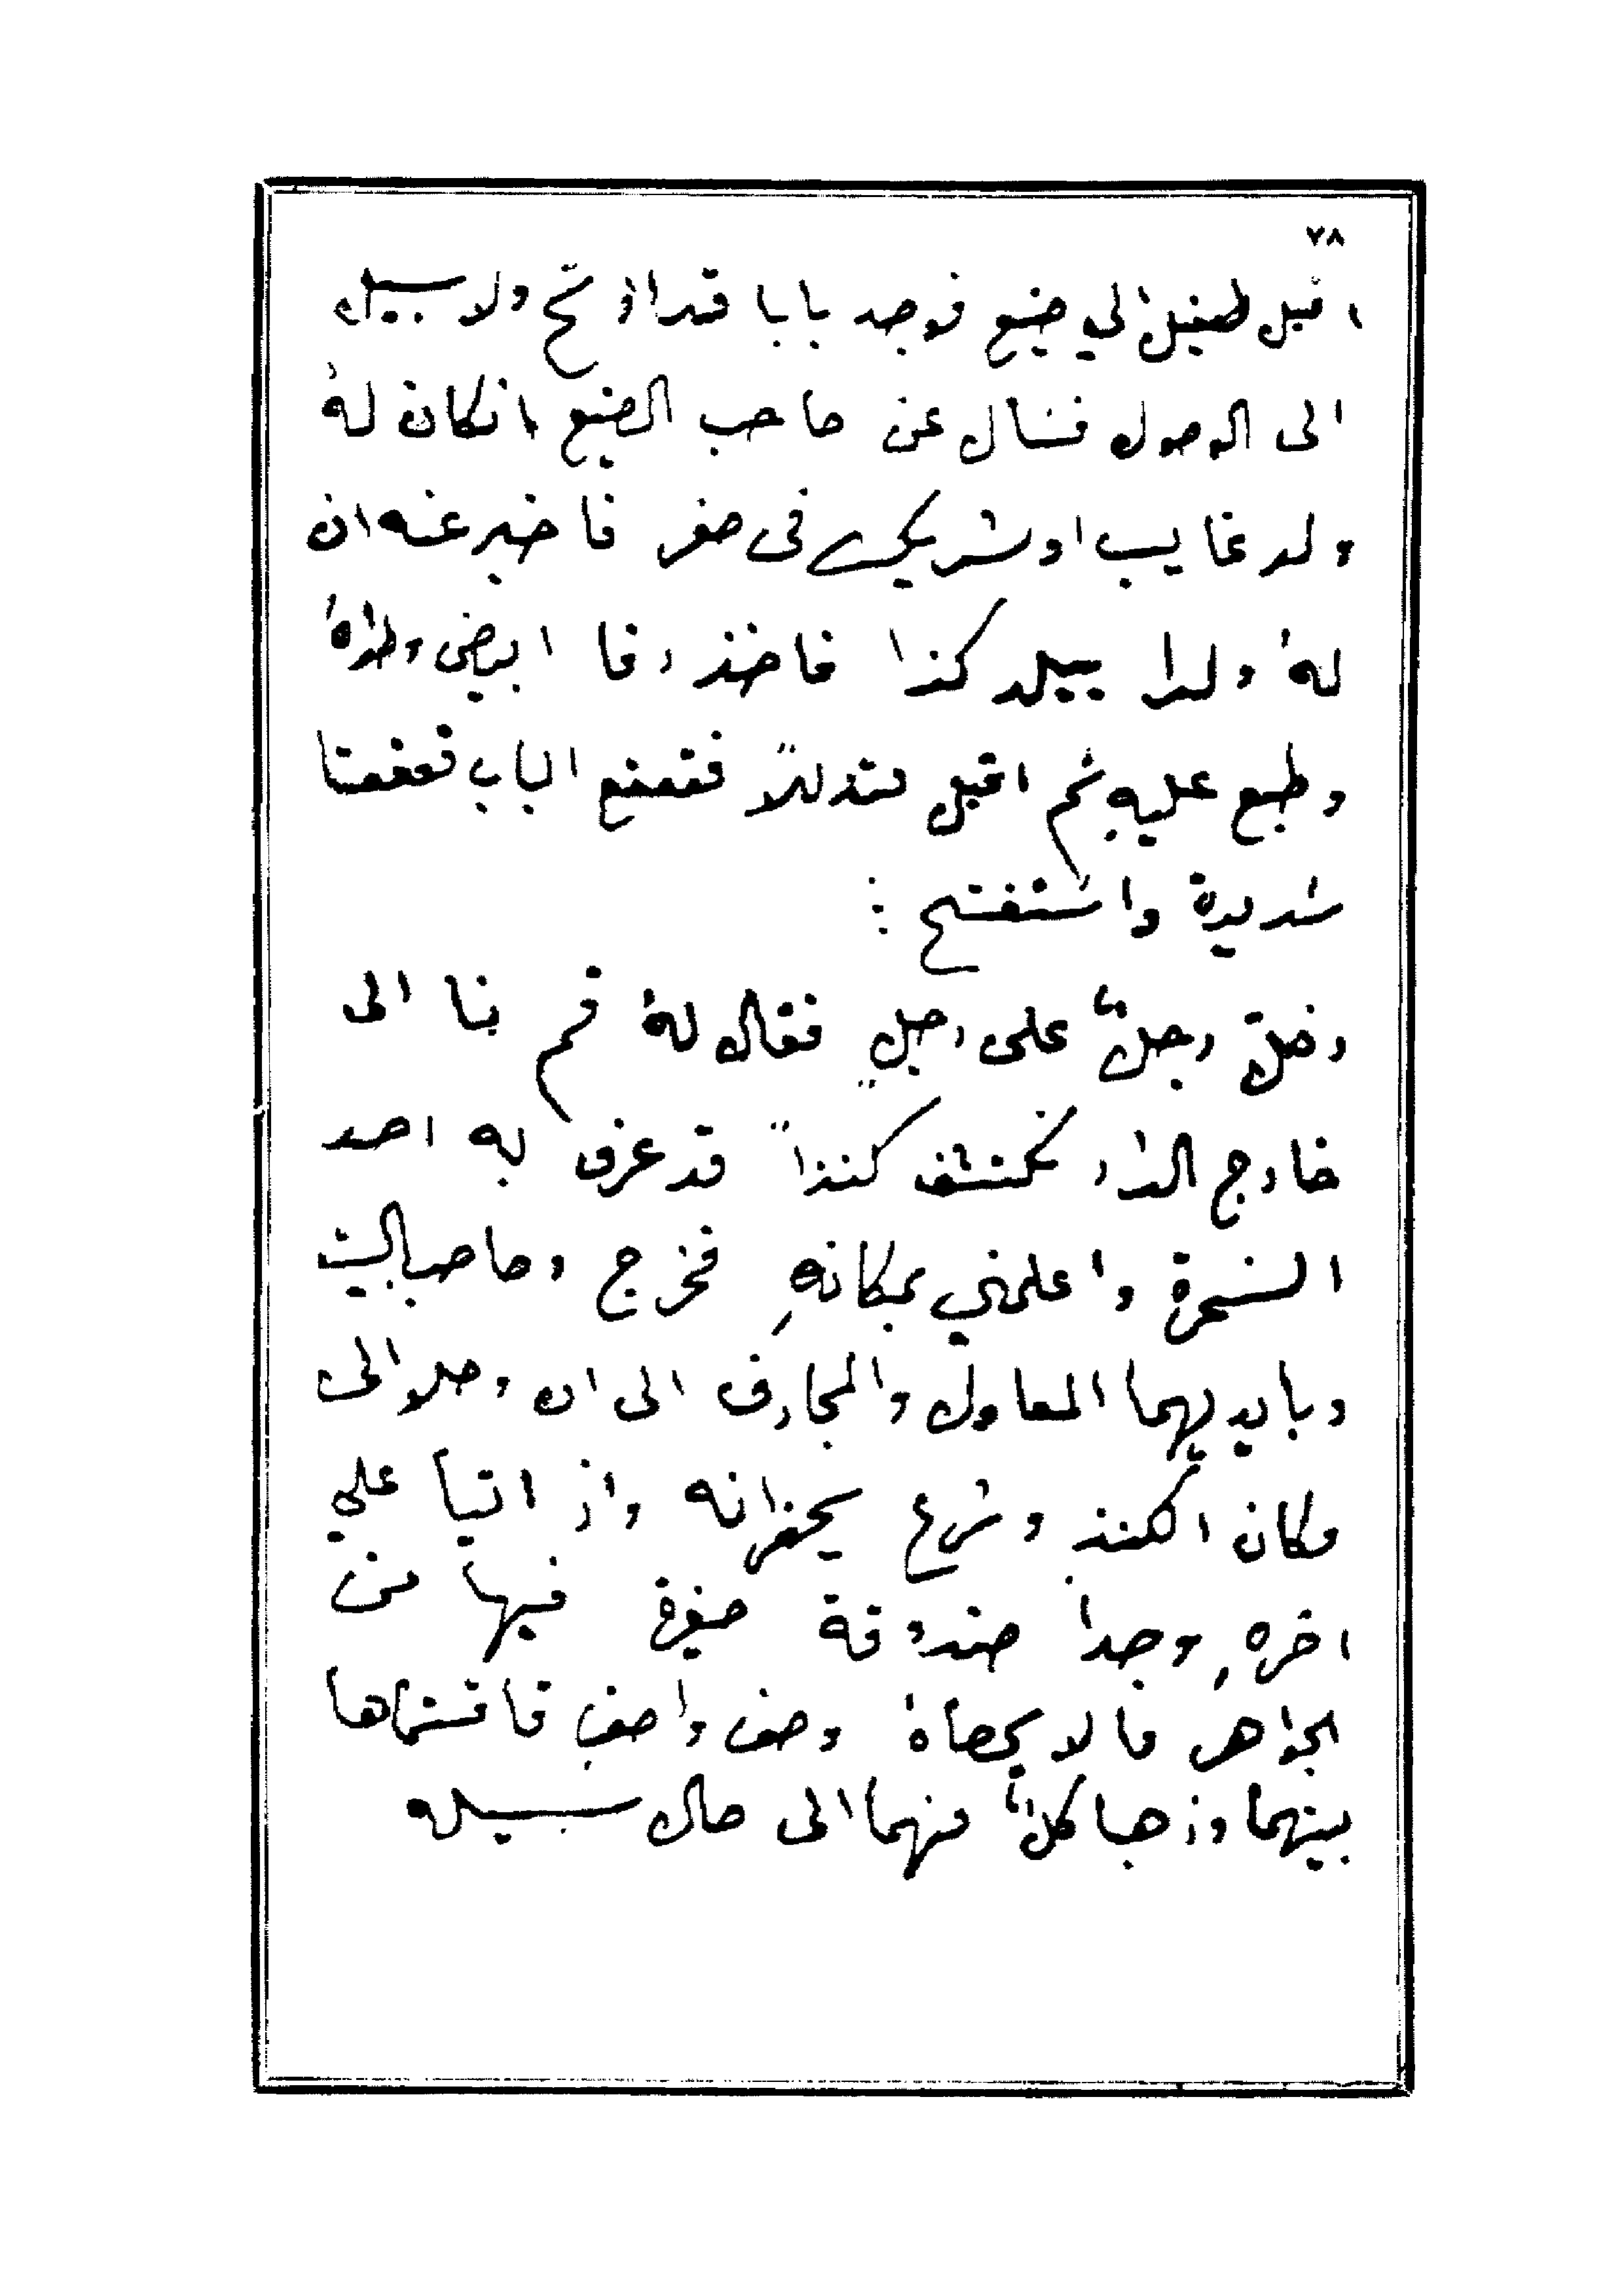 ٧٨
اقبل طفيل الي ضيع فوجد بابا قد ارتج ولا سبيل
الى الوصول فسَال عن صاحب الضيع انكان لهُ
ولد غايب او شريك في سفر فاخبر عنه ان
لهُ ولدا ببلد كذا فاخذ رقا ابيض وطواهُ
وطبع عليهِ ثم اقبل متدللاً فقعقع الباب قعقعتا
شديدة واستفتح :
دخل رجلٌ على رجلٍ فقال لهُ قم بنا الى
خارج الدار نكتشف كنزاً قد عرف به احد
السحرة واعلمني بمكانهِ فخرج وصاحب البيت
وبايديهما المعاول والمجارف الى ان وصلو الى
مكان الكنز وشرع يحفرانه واذ اتيا علي
اخرهِ وجدا صندوقة صغيرة فيها من
الجواهر ما لا يحصاهُ وصف واصف فاقتسماها
بينهما وذهبا كلٌ منهما الى حال سبيله